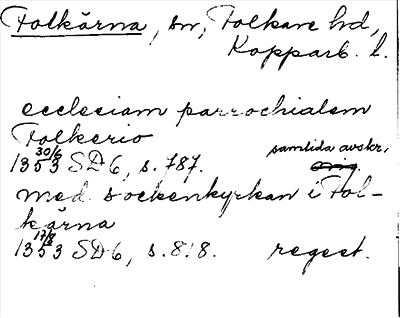 Folkärna, sn, Folkare hd,
Kopparb. l.
ecclesiam parrochialem
Folkerio
1353 30/6 SD6, s. 787. samtida avskr,
Orig.
med sockenkyrkan i Fol-
kärna
1353 17/8 SD6, s. 818. regest.